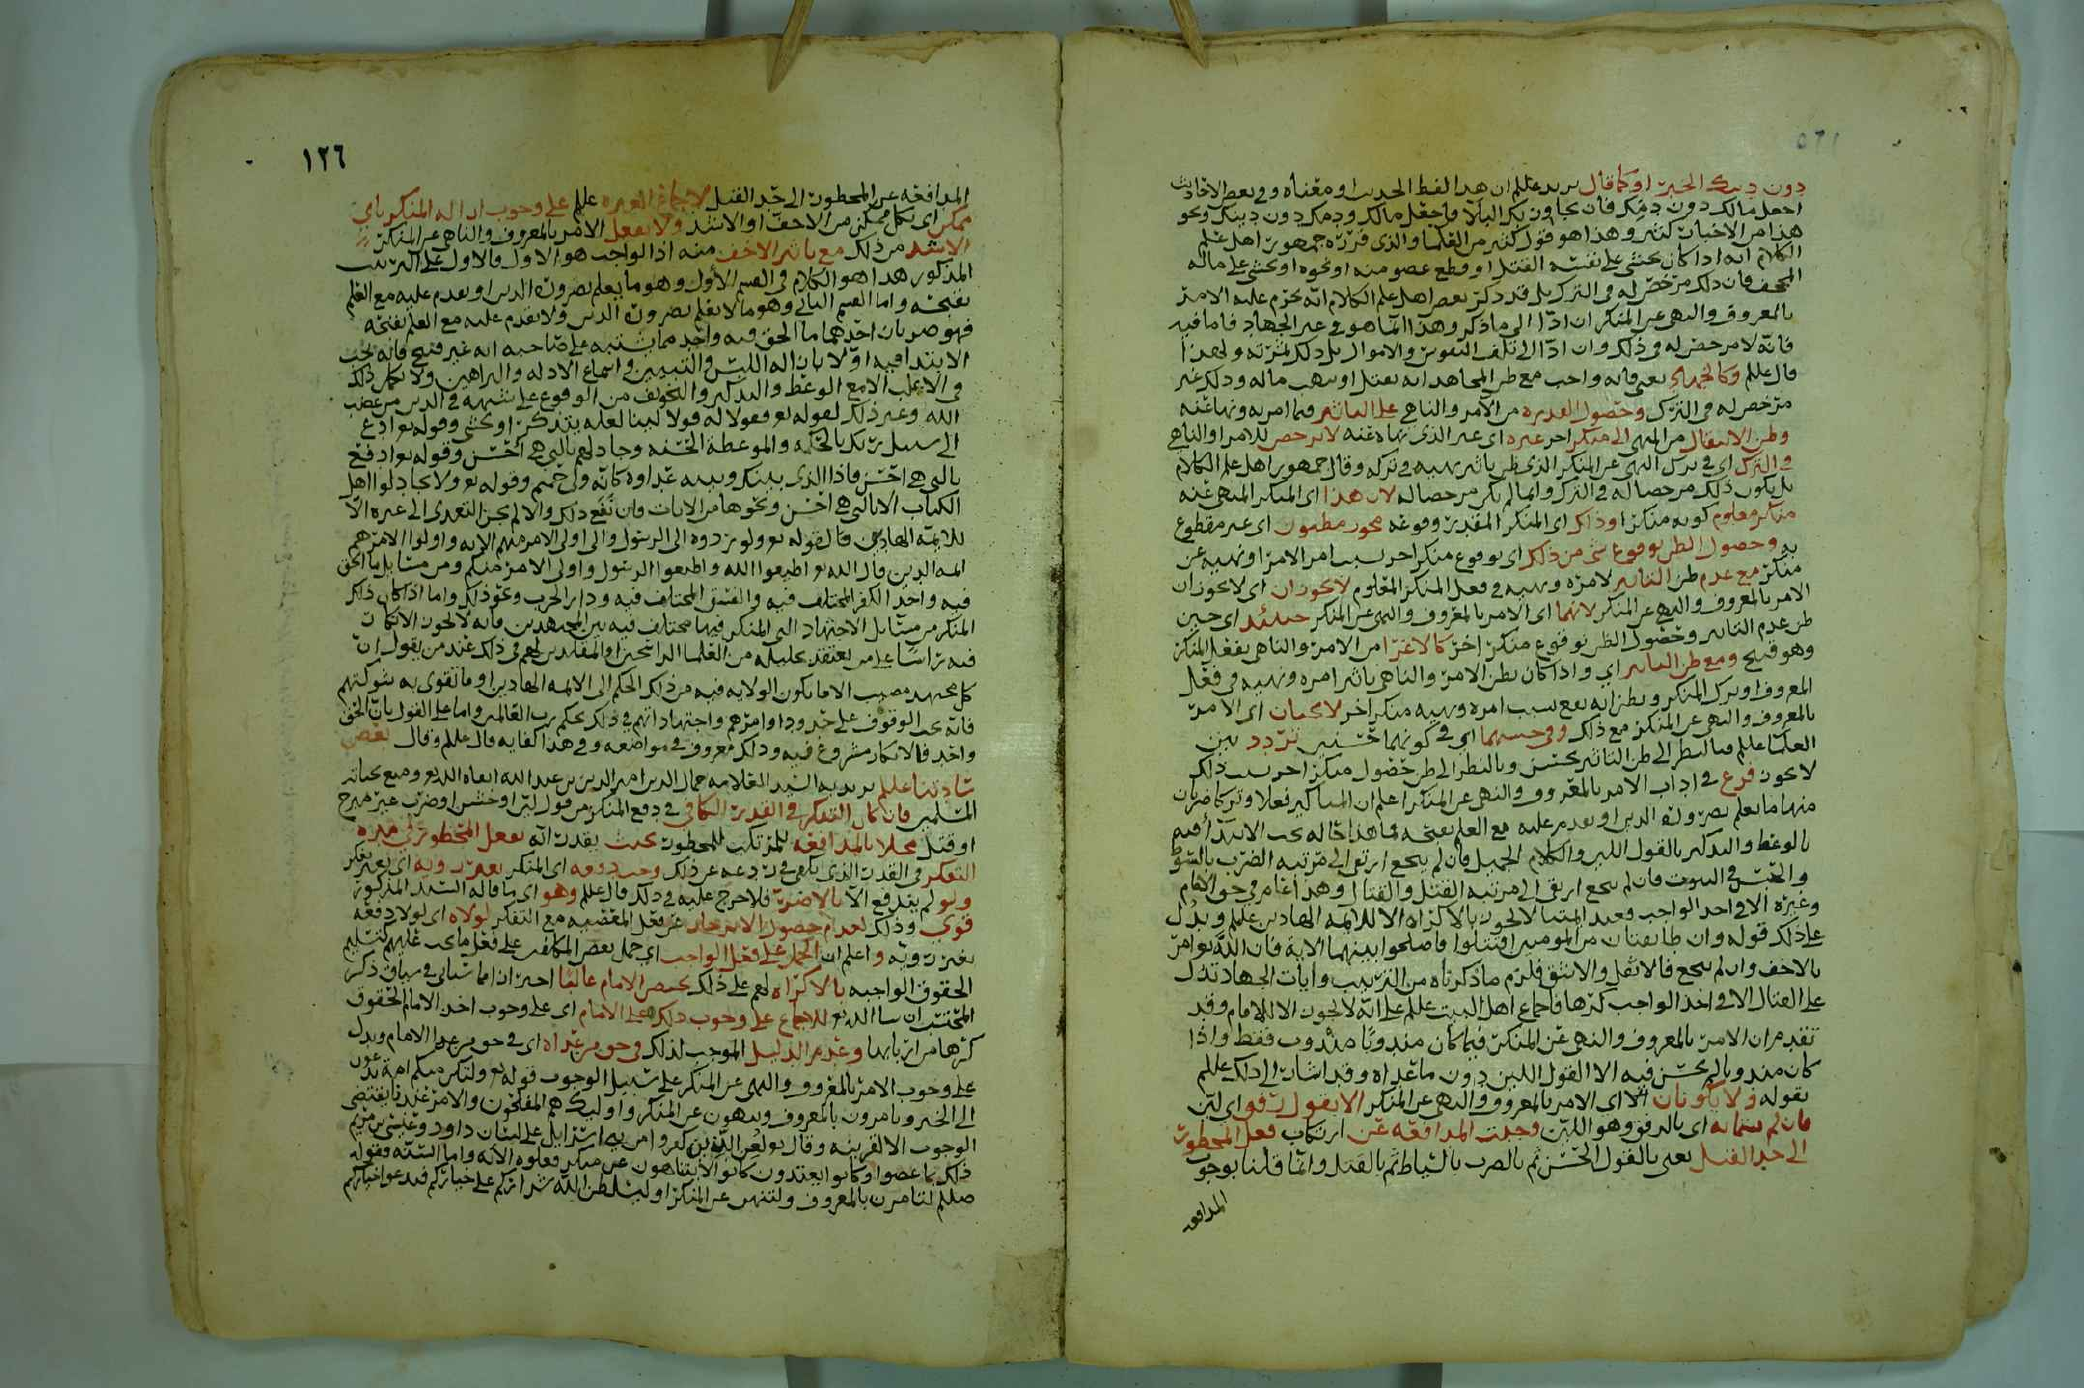 دون دينك الخبر او كما قال يريد عللم ان هذا لفظ الحديث او معناه وفي بعض الاخاديث
اجعل مالك دون دمك فان تجاوز بك البلا فاجعل مالك ودمك دون دينك ونحو
هذا من الاخبار كثير وهذا هو قول كثير من العلما والذي قرره جمهور اهل علم
الكلام انه اذا كان يخشى على نفسه القتل او قطع عضو منه او نحوه او يخشى على ماله
المجحف فان ذلك مرخص له في الترك بل قد ذكر بعض اهل علم الكلام انه يحرم عليه الامر
بالمعروف والنهي عن المنكر ان ادا الى ما ذكر وهذا انما هو في غير الجهاد فاما فيه
فانه لا مرخص له في ذلك وان ادا الى تلف النفوس والاموال بل ذلك ثمرته ولهذا
قال عللم وكالجهاد يعني فانه واجب مع ظن المجاهد انه يقتل او ينهب ماله وذلك غير
مرخص له في الترك وحصول القدره من الآمر والناهي على التاثير فيما امر به ونها عنه
وظن الانتقال من النهي الى منكر اخر غيره اي غير الذي نهاه عنه لا يرخص للامر او الناهي
في الترك اي في ترك النهي عن المنكر الذي ظن تاثير نهيه في تركه وقال جمهور اهل علم الكلام
بل يكون ذلك مرخصا له في الترك وانما لم يكن مرخصا له لان هذا اي المنكر المنهي عنه
منكر معلوم كونه منكرا وذاك اي المنكر المقدر وقوعه مجوز مظنون اي غير مقطوع
به وحصول الظن بوقوع شي من ذلك اي بوقوع منكر اخر بسبب امر الامر او نهيه عن
منكر مع عدم ظن التاثير لامره ونهيه في فعل المنكر المعلوم لا يجوزان اي لا يجوز ان
الامر بالمعروف والنهي عن المنكر لانهما اي الامر بالمعروف والنهي عن المنكر حينئذ اي حين
ظن عدم التاثير وحصول الظن بوقوع منكر اخر كالاغرا من الامر والناهي بفعل المنكر
وهو قبيح ومع ظن التاثير اي واذا كان يظن الامر والناهي تاثير امره ونهيه في فعل
المعروف او ترك المنكر ويظن انه يقع بسبب امره ونهيه منكر اخر لا يجبان اي الامر
بالمعروف والنهي عن المنكر مع ذلك وفي حسنهما اي في كونهما حسنين تردد بين
العلما عللم فبالنظر الى ظن التاثير يحسن وبالنظر الى ظن حصول منكر اخر بسبب ذلك
لا يحسن فرع في اداب الامر بالمعروف والنهي عن المنكر اعلم ان المناكير فعلا وتركا ضربان
منها ما يعلم بضرورة الدين او يقدم عليه مع العلم بقبحه فما هذا حاله يجب الابتدا فيه
بالوعظ والتذكير بالقول اللين والكلام الجميل فان لم ينجع ارتقى الى مرتبة الضرب بالسوط
والحبس في البيوت فان لم ينجع ارتقى الى مرتبة القتل والقتال وهذا عام في حق الامام
وغيره الا في اخذ الواجب
على ذلك قوله وان طائفتان من المومنين اقتتلوا فاصلحوا بينهما الاية فان الله تعالى امر
بالاخف وان لم ينجع فالاثقل والاشق فلزم ما ذكرناه من الترتيب وايات الجهاد تدل
على القتال الا في اخذ الواجب كرها فاجماع اهل البيت عللم على انه لا يجوز الا للامام وقد
تقدم ان الامر بالمعروف والنهي عن المنكر فيما كان مندوبا مندوب فقط واذا
كان مندوبا لم يحسن فيه الا القول اللين دون ما عداه وقد اشار الى ذلك عللم
بقوله ولا يكونان اي الامر بالمعروف والنهي عن المنكر الا بقول رفق اي لين
فان لم يتما به اي بالرفق وهو اللين وجبت المدافعه عن ارتكاب فعل المحظور
الى حد القتل يعني بالقول الخشن ثم بالضرب بالسياط ثم بالقتل وانما قلنا بوجوب
المدافعه
١٢٦
المدافعه عن المحظور الى حد القتل لاجماع العتره عللم على وجوب ازالة المنكر باي
ممكن اي بكل ممكن من الاخف او الاشد ولا يفعل الامر بالمعروف والناهي عن المنكر
الاشد من ذلك مع تاثير الاخف منه اذ الواجب هو الاول فالاول على الترتيب
المذكور هذا هو الكلام في القسم الاول وهو ما يعلم بضرورة الدين او يقدم عليه مع العلم
بقبحه واما القسم الثاني وهو ما لا يعلم بضرورة الدين ولا يقدم عليه مع العلم بقبحه
فهو ضربان احدهما ما الحق فيه واحد مما يشتبه على صاحبه انه غير قبيح فانه يجب
الابتدا فيه اولا بازالة اللبس والتبيين واسماع الادله والبراهين ولا يكمل ذلك
في الاغلب الا مع الوعظ والتذكير والتخويف من الوقوع على شبهه في الدين من غضب
الله وغير ذلك لقوله تع فقولا له قولا لينا لعله يتذكر او يخشى وقوله تع ادع
الى سبيل ربك بالحكمه والموعظة الحسنه وجادلهم بالتي هي احسن وقوله تع ادفع
بالتي هي احسن فاذا الذي بينك وبينه عداوة كانه ولي حميم وقوله تع ولا تجادلوا اهل
الكتاب الا بالتي هي احسن ونحوها من الايات فان نفع ذلك والا لم يجز التعدي الى غيره الا
للائمة الهادين فالقوله تع ولو ردوه الى الرسول والى اولي الامر منهم الايه واولوا الامر هم
ائمة الدين قال الله تع اطيعوا الله واطيعوا الرسول واولي الامر منكم ومن مسايل ما الحق
فيه واحد الكفر المختلف فيه والفسق المختلف فيه ودار الحرب ونحو ذلك واما اذا كان ذلك
المنكر من مسايل الاجتهاد التي المنكر فيها مختلف فيه بين المجتهدين فانه لا يجوز الانكار
فيه راسا على من يعتقد تحليله من العلما الراسخين او المقلدين لهم في ذلك عند من يقول ان
كل مجتهد مصيب الا ما يكون الولايه فيه من ذلك الحكم الى الائمه الهادين او ما تقوى به شوكتهم
فانه يجب الوقوف على حدود اوامرهم واجتهاداتهم في ذلك بحكم رب العالمين واما على القول بان الحق
واحد فالانكار مشروع فيه وذلك معروف في مواضعه وفي هذا كفايه قال عللم وقال بعض
ساداتنا عللم يريد به السيد العلامه جمال الدين امير الدين بن عبد الله ابقاه الله تع ومتع بحياته
المسلمين فان كان التفكر في القدر الكافي في دفع المنكر من قول لين او خشن او ضرب غير مبرح
او قتل مخلا بالمدافعه للمرتكب للمحظور بحيث يقدر انه يفعل المحظور في مدة
التفكر في القدر الذي يكفي في ردعه عن ذلك وجب دفعه اي المنكر بغير رويه اي بغير تفكر
ولو لم يندفع الا بالاضرار فلا حرج عليه في ذلك قال عللم وهو اي ما قاله السيد المذكور
قوي وذلك لعدم حصول الانزجار عن فعل المعصيه مع التفكر لولاه اي لولا دفعه
بغير رويه واعلم ان الحمل على فعل الواجب اي حمل بعض المكلفين على فعل ما يجب عليهم كتسليم
الحقوق الواجبه بالاكراه لهم على ذلك يختص الامام غالبا احترازا مما سياتي في سياق ذكر
المحتسب ان شا الله تع للاجماع على وجوب ذلك على الامام اي على وجوب اخذ الامام الحقوق
كرها من اربابها وعدم الدليل الموجب لذلك في حق من عداه اي في حق من عدا الامام ويدل
على وجوب الامر بالمعروف والنهي عن المنكر على سبيل الوجوب قوله تع ولتكن منكم امة يدعون
الى الخير ويامرون بالمعروف وينهون عن المنكر واوليك هم المفلحون والامر عندنا يقتضي
الوجوب الا لقرينه وقال تع لعن الذين كفروا من بني اسرائيل على لسان داود وعيسى بن مريم
ذلك بما عصوا وكانوا يعتدون كانوا لا يتناهون عن منكر فعلوه الايه واما السنه فقوله
صللم لتامرن بالمعروف ولتنهن عن المنكر او ليسلطن الله شراركم على خياركم فيدعوا خياركم